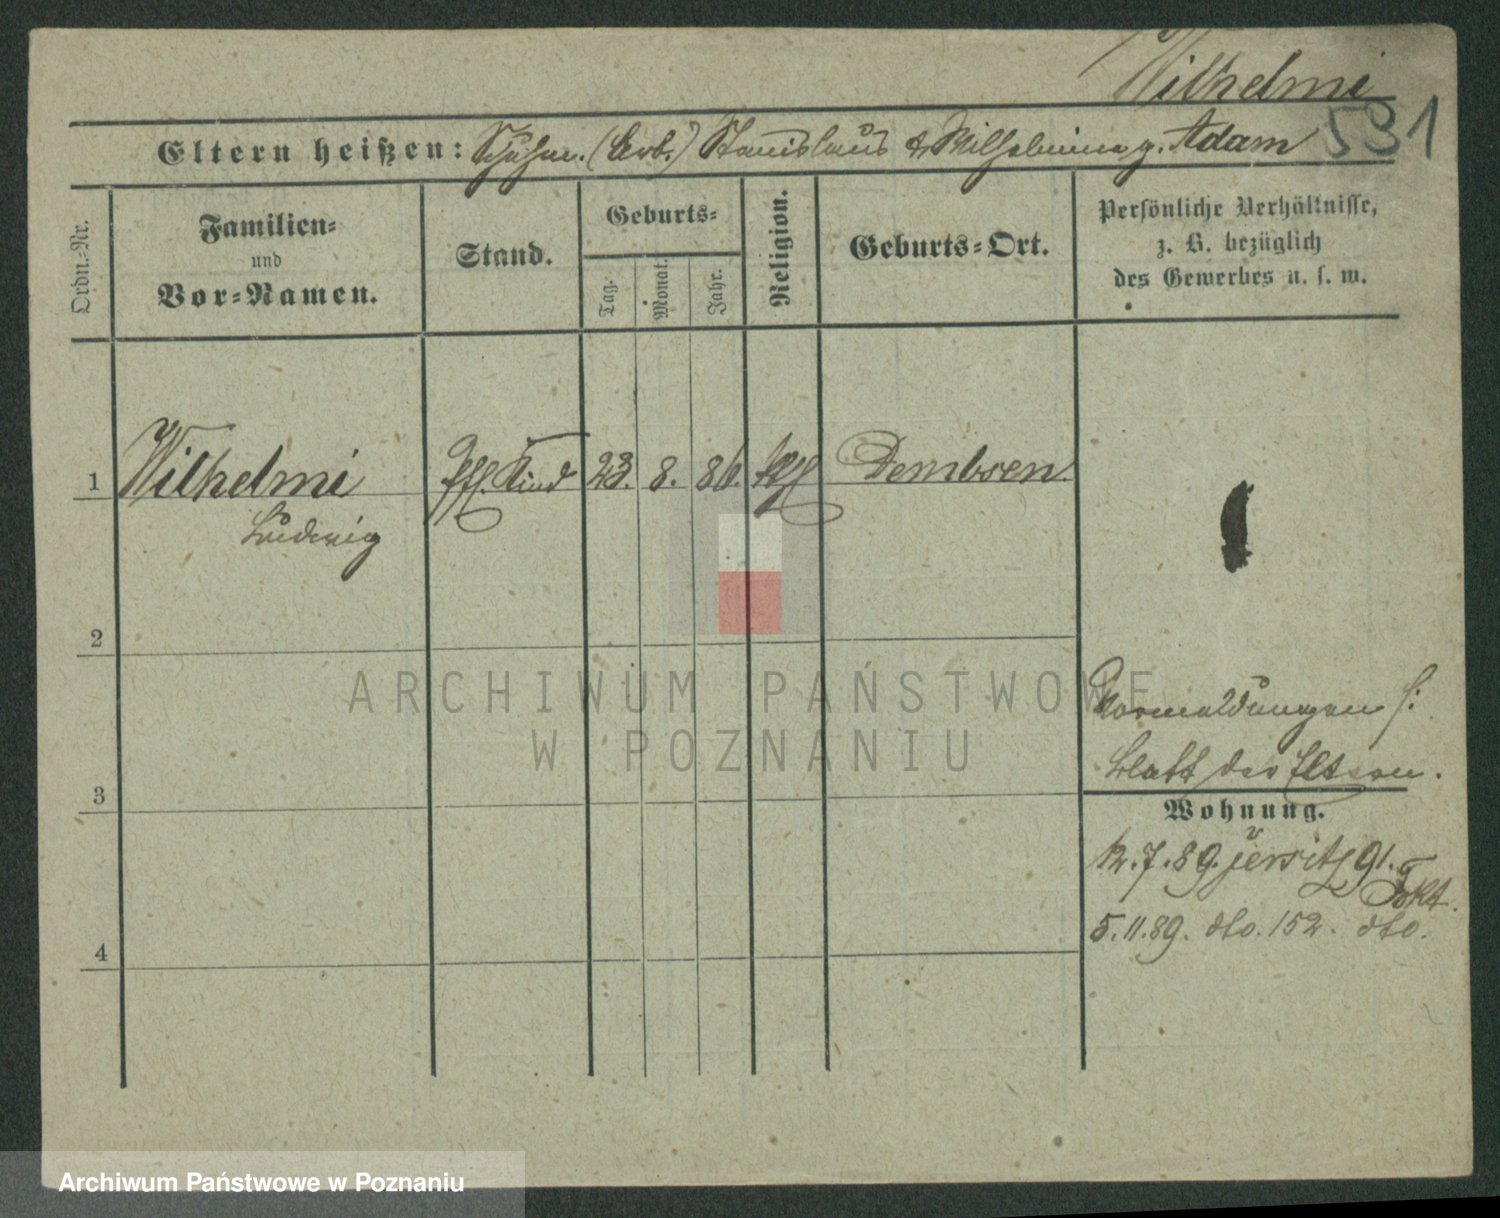 Wilhelmi
531
Eltern heißen: Schuhm. (Arb.) Stanislaus & Wilhelmine g. Adam
Ordn.-Nr.
Familien-
und
Vor-Namen.
Stand.
Geburts-
Tag.
Monat.
Jahr.
Religion.
Geburts-Ort.
Persönliche Verhältnisse,
z. B. bezüglich
des Gewerbes u. s. w.
1 Wilhelmi Kind 23. 8. 86. kth Dembsen
Ludwig
2
ARCHIWUM PAŃSTWOWE
W POZNANIU
Vormeldungen s:
Blatt der Eltern.
3
Wohnung.
12.7.89. Jersitz 91.
5.11.89. dto. 152. dto.
4
Archiwum Państwowe w Poznaniu